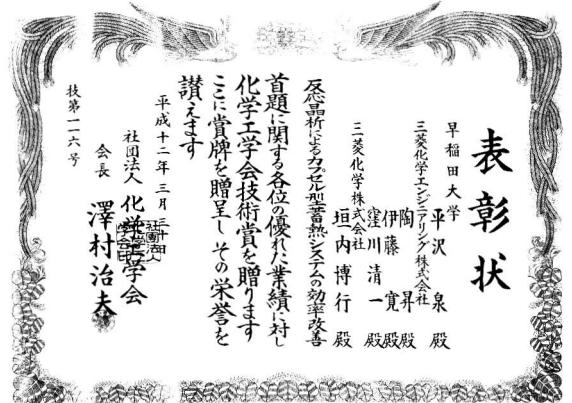 表彰状
早稲田大学
平沢 泉 殿
三菱化学エンジニアリング株式会社
陶 昇 殿
伊藤 寛 殿
三菱化学株式会社
窪川清一 殿
垣内博行 殿
反応晶析によるカプセル型蓄熱システムの効率改善
首題に関する各位の優れた業績に対し
化学工学会技術賞を贈ります
ここに賞牌を贈呈し その栄誉を
讃えます
平成十二年三月三十日
社団法人 化学工学会
会長 澤村治夫
技第一一六号